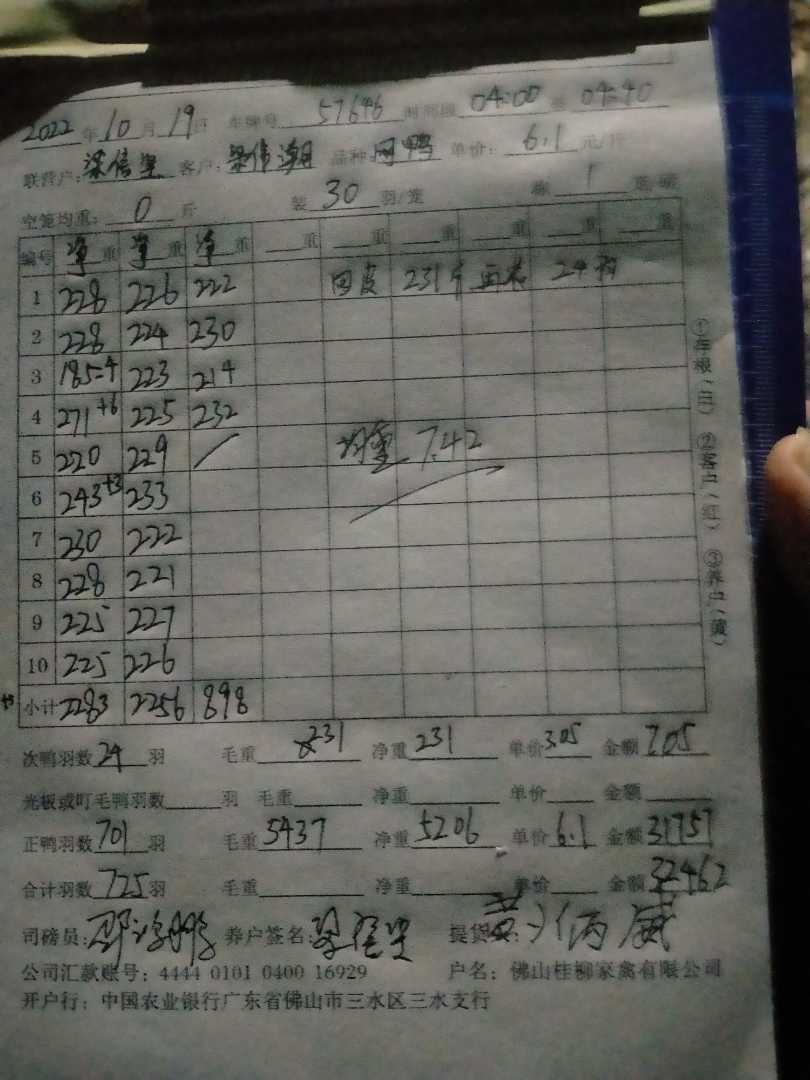 2022年10月19日 车牌号 57646 时间段 04:00 至 04:40
联营户: 梁信坚 客户: 梁伟潮 品种: 网鸭 单价: 6.1 元/斤
空笼均重: 0 斤 装 30 羽/笼 1
编号 净重 净重 净重 重 重 重 重 重 重
1 228 226 222 231斤 24羽
2 228 224 230
3 185-4 223 214
4 271+6 225 232
5 220 229 / 均重 7.42
6 243+3 233
7 230 222
8 228 221
9 225 227
10 225 226
小计 2283 2256 898
次鸭羽数 24 羽 毛重 231 净重 231 单价 3.05 金额 705
光板或叮毛鸭羽数 羽 毛重 净重 单价 金额
正鸭羽数 701 羽 毛重 5437 净重 5206 单价 6.1 金额 31757
合计羽数 725 羽 毛重 净重 单价 金额 32462
司磅员: 养户签名: 提货
公司汇款账号: 4444 0101 0400 16929 户名: 佛山桂柳家禽有限公司
开户行: 中国农业银行广东省佛山市三水区三水支行
①存根(白) ②客户(红) ③养户(黄)